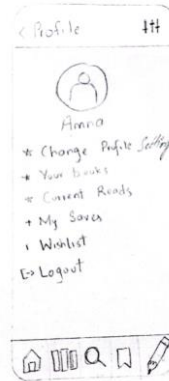 < Profile
Amna
* Change Profile Setting
* Your books
* Current Reads
+ My Saves
Wishlist
Logout